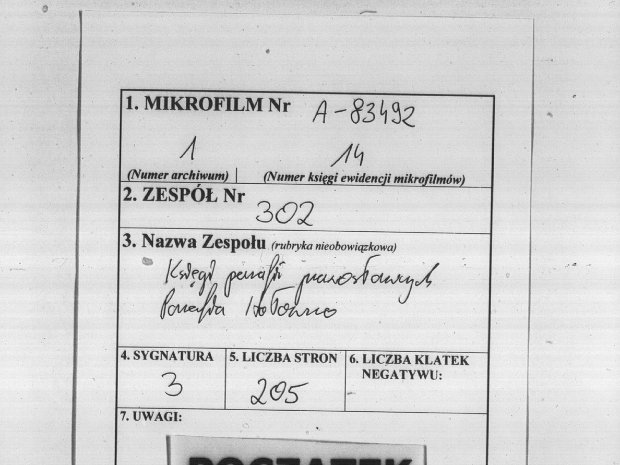 1. MIKROFILM Nr A-83492
1 14
(Numer archiwum) (Numer księgi ewidencji mikrofilmów)
2. ZESPÓŁ Nr
302
3. Nazwa Zespołu (rubryka nieobowiązkowa)
Księgi parafii prawosławnych
Parafia Hołowno
4. SYGNATURA 5. LICZBA STRON 6. LICZBA KLATEK
NEGATYWU:
3 205 -
7. UWAGI:
POCZĄTEK